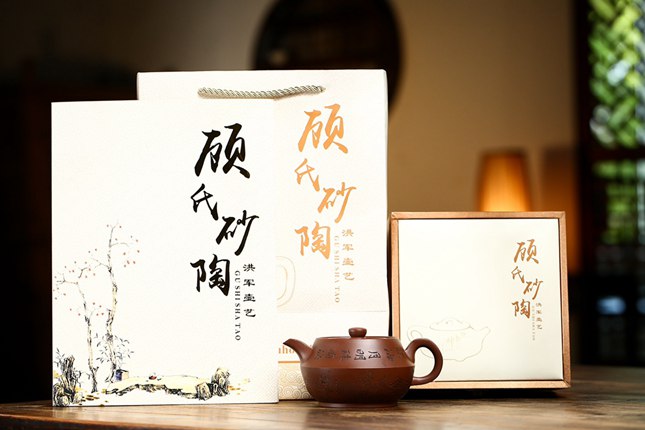 顾氏砂陶
洪军壶艺
GU SHI SHA TAO
顾氏砂陶
洪军壶艺
GU SHI SHA TAO
顾氏砂陶
洪军壶艺